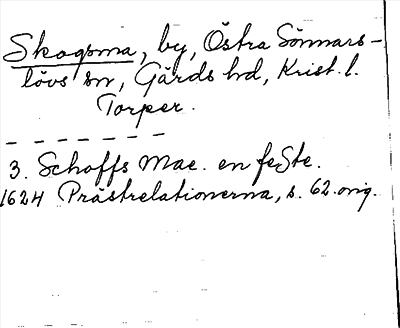 Skogsma, by, Östra Sönnars-
lövs sn, Gärds hd, Krist. l.
Torper.
3. Schoffs Mae. en feSte.
1624 Prästrelationerna, s. 62. orig.